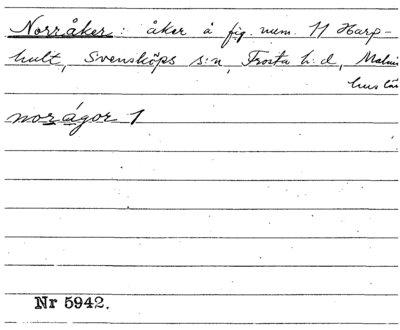 Norråker: åker å fig. num. 11 Harp-
hult, Svensköps s:n, Frosta h:d, Malmö
hus län
norágor 1
Nr 5942.